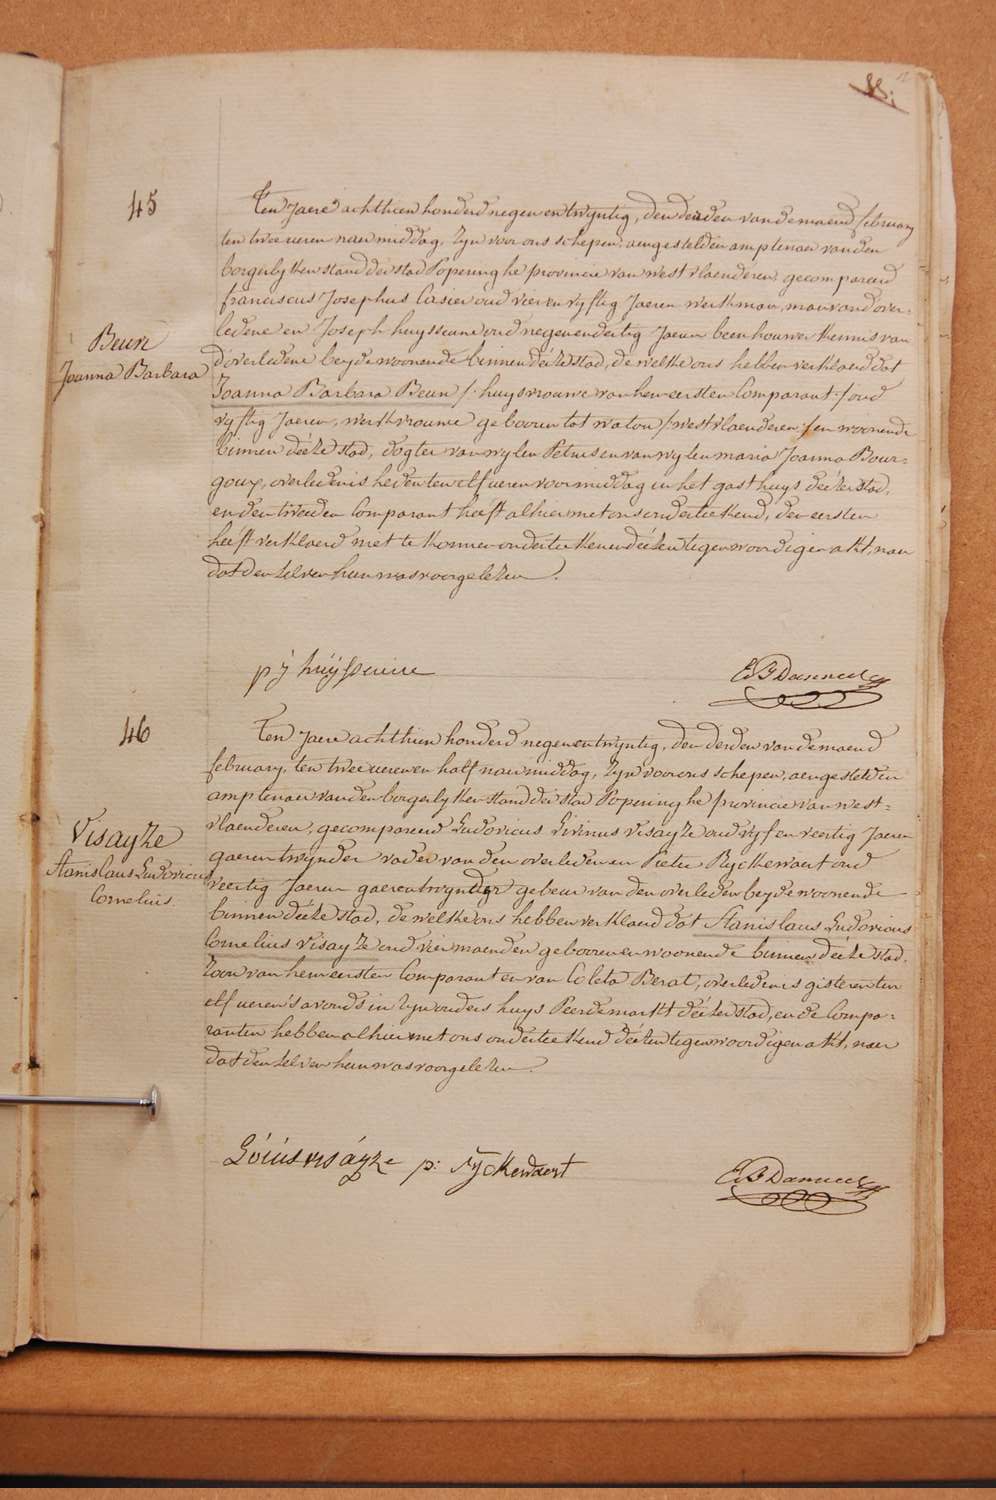 45
Ten Jaere achthien honderd negen en twyntig, den derden van de maend february
ten twee ueren naer middag, zyn voor ons schepen, aengestelden amptenaer van den
borgerlyken stand der stad Poperinghe provincie van westvlaenderen gecompareerd
franciscus Josephus Casier oud vier en vyftig Jaeren werkman, man van d'over-
ledene en Joseph huyssaune oud negenendertig Jaeren beenhouwer kennis van
d'overledene beyde woonende binnen deéze stad, de welke ons hebben verklaerd dat
Beun
Joanna Barbara
Joanna Barbara Beun /: huysvrouwe van hem eersten Comparant :/ oud
vyftig Jaeren, werkvrouwe gebooren tot watou /: westvlaenderen :/ en woonende
binnen deéze stad, dogter van wylen Petrus en van wylen maria Joanna Bour-
goux, overleden is heden ten elf ueren voormiddag in het gasthuys deézer stad,
en den tweeden Comparant heéft alhier met ons onderteekend, den eersten
heéft verklaerd niet te konnen onderteekenen deézen tegenwoordigen akt, naer
dat den zelven hun was voorgelezen.
p j huÿssaune
46
Ten Jaere achthien honderd negen en twyntig, den derden van de maend
february, ten twee ueren en half naermiddag, zyn voor ons schepen, aengestelden
amptenaer van den borgerlyken stand der stad Poperinghe provincie van west-
vlaenderen, gecompareerd Ludovicus Livinus Visayze oud vyf en veertig Jaeren
Visayze
Stanislaus Ludovicus
Cornelius
gaerentwynder vader van den overledenen en Pieter Ryckewaert oud
veertig Jaeren gaerentwynder gebeur van den overleden beyde woonende
binnen deéze stad, de welke ons hebben verklaerd dat Stanislaus Ludovicus
Cornelius Visayze oud vier maenden gebooren en woonende binnen deéze stad,
zoon van hem eersten Comparant en van Coleta Berat, overleden is gisteren ten
elf ueren 's avonds in zyn ouders huys Peerdemarkt deézer stad, en de Compa-
ranten hebben alhier met ons onderteekend deézen tegenwoordigen akt, naer
dat den zelven hun was voorgelezen.
p: rÿckewaert